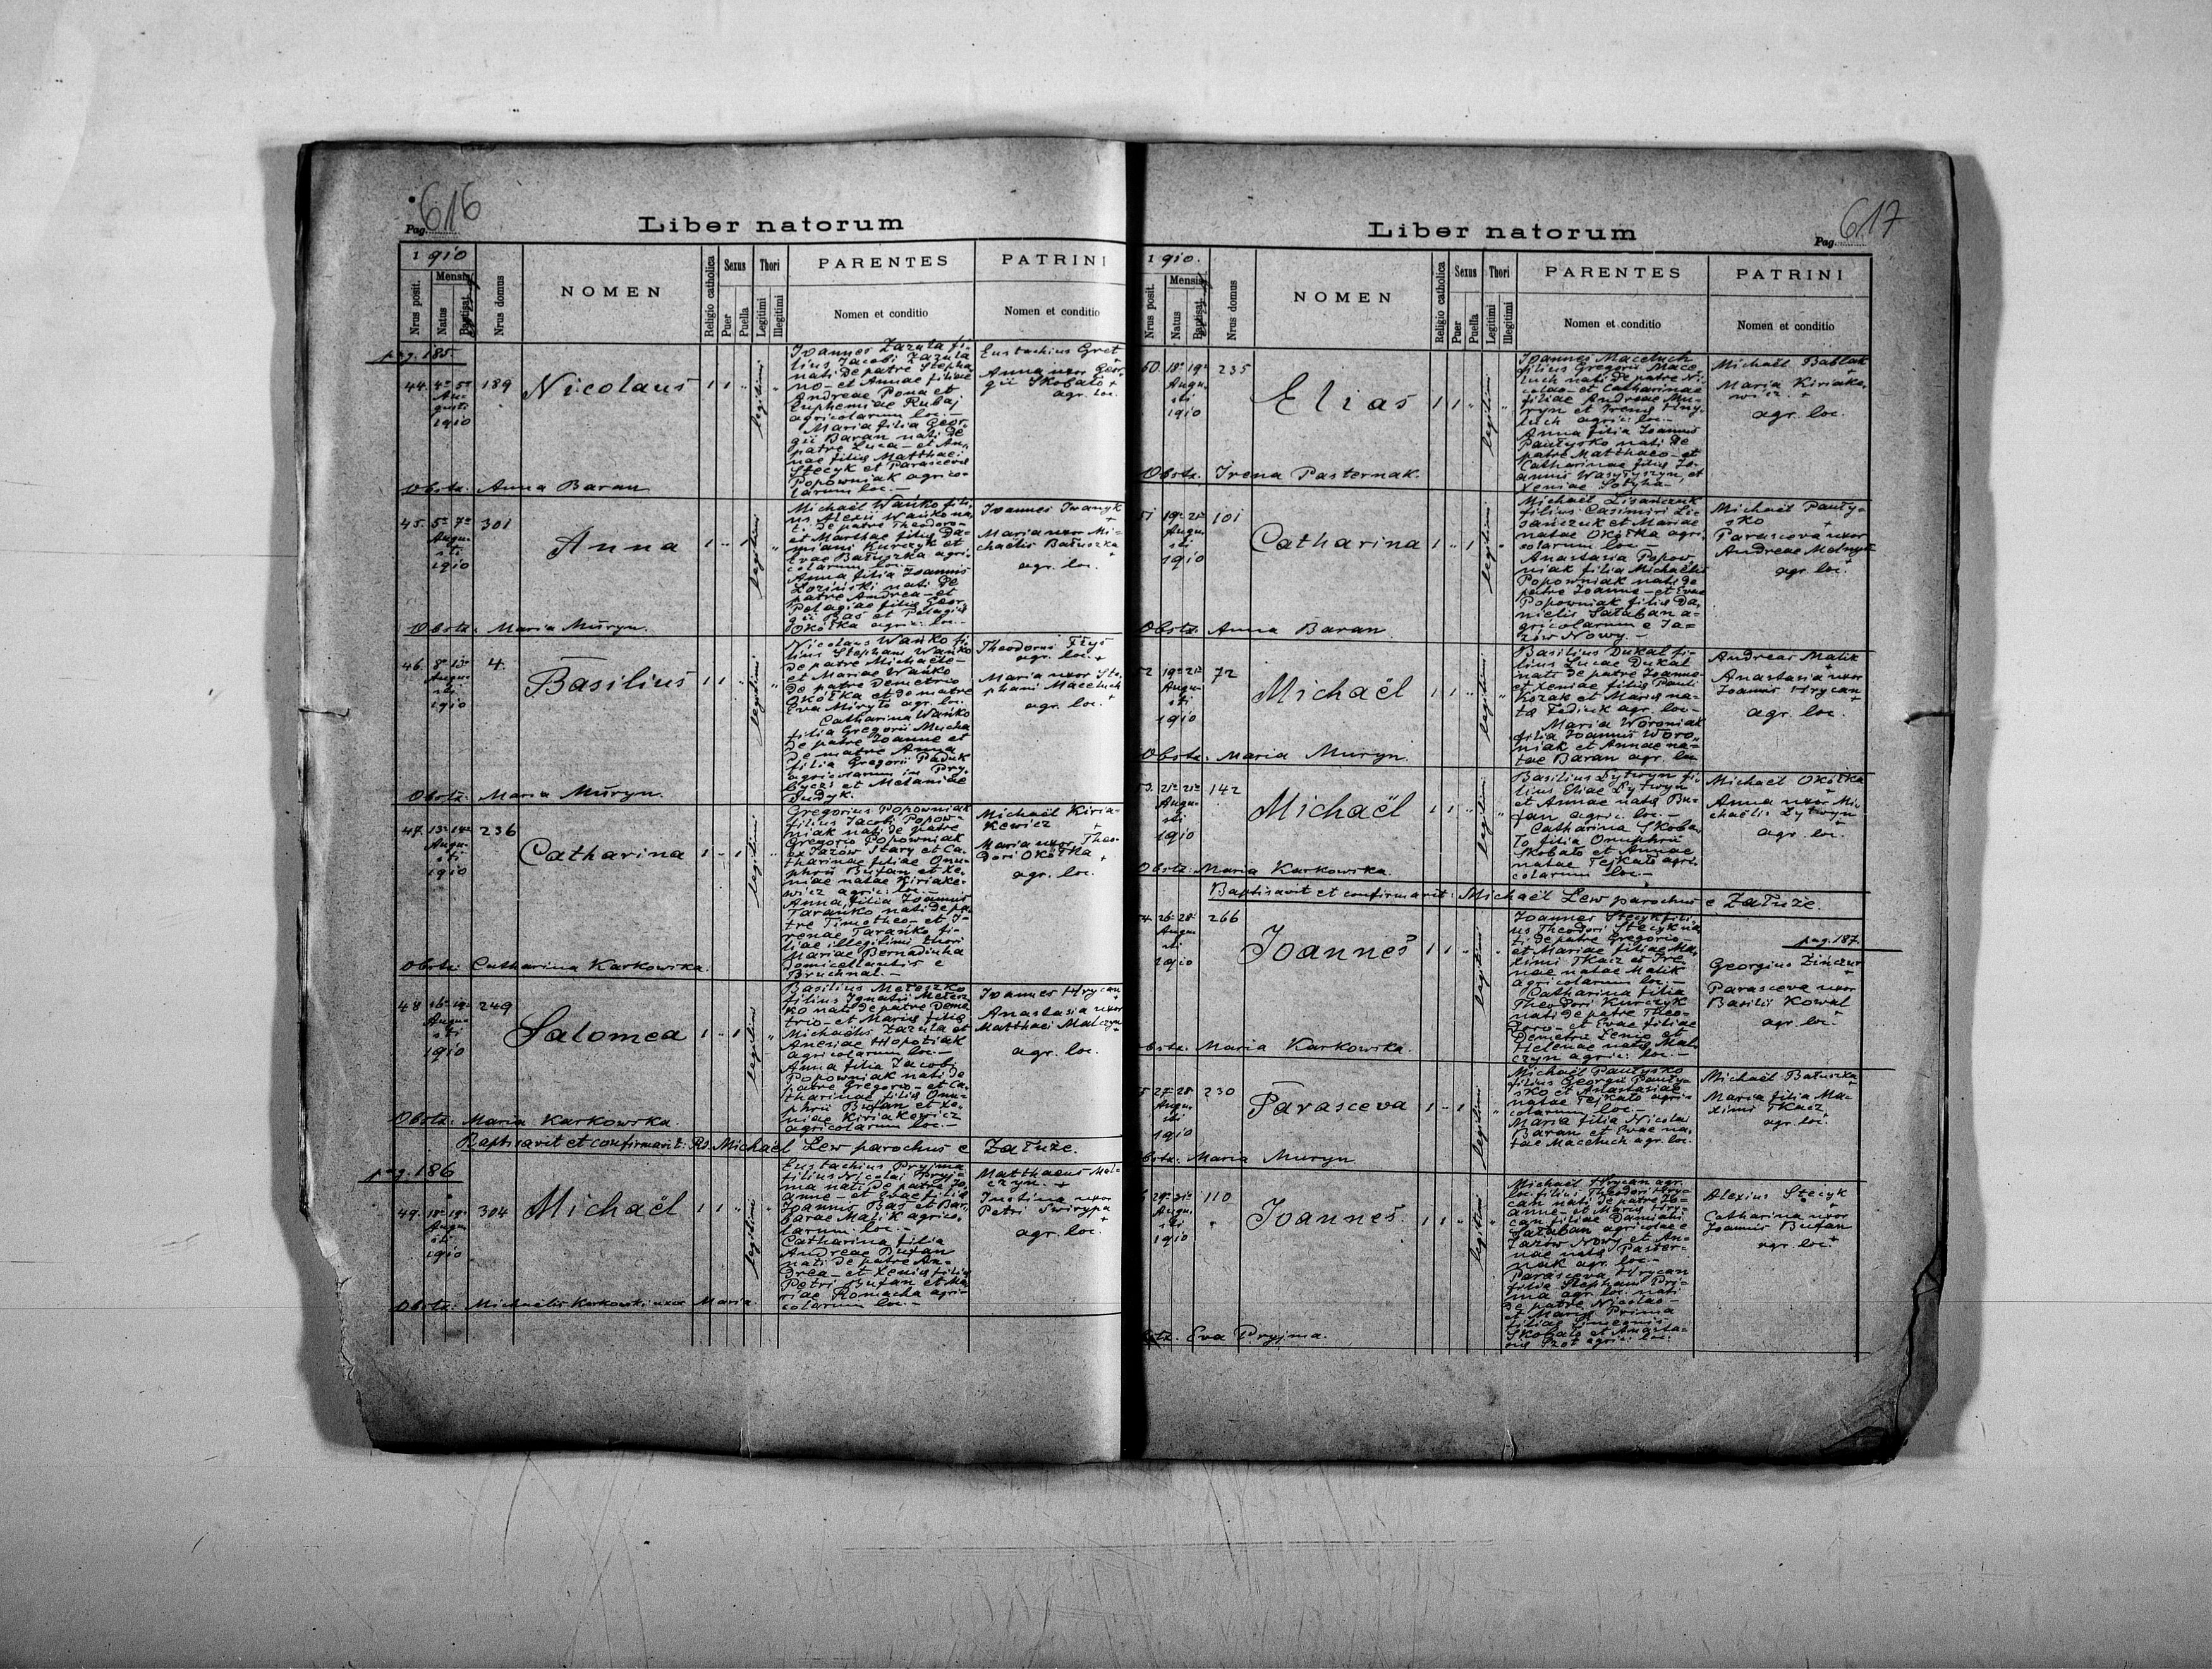 616
Pag.
Liber natorum
1910
Nrus posit.
Mensis
Natus
Baptisat.
Nrus domus
NOMEN
Religio catholica
Sexus
Puer
Puella
Thori
Legitimi
Illegitimi
PARENTES
Nomen et conditio
PATRINI
Nomen et conditio
pag. 185.
44. 4. 5.
Au-
gusti
1910
189
Nicolaus
1 1
legitimi
Ioannes Zazula fi-
lius Jacobi Zazula
nati de patre Stepha
no - et Annae filiae
Andreae Pona et
Euphemiae Rubaj
agricolarum loc. -
Maria filia Geor-
gii Baran nati de
patre Luca - et An-
nae filiae Matthaei
Stecyk et Parascevae
Popowniak agrico-
larum loc. -
Eustachius Gret
+
Anna uxor Geor-
gii Skobało +
agr. loc.
Obstz. Anna Baran
45. 5. 7.
Augu-
sti
1910
301
Anna
1 1
legitimi
Michaël Wańko fili-
us Alexii Wańko na-
ti de patre Theodoro -
et Marthae filiae Da-
miani Kurczyk et
Evae Batuszka agri-
colarum loc. -
Anna filia Joannis
Łoziński nati de
patre Andrea - et
Pelagiae filiae Geor-
gii Baś et Pelagiae
Okółka agric. loc. -
Ioannes Iwanyk
+
Maria uxor Mi-
chaëlis Batuszka
agr. loc.
Obstz. Maria Muryn.
46. 8. 13.
Augu-
sti
1910
4.
Basilius
1 1
legitimi
Nicolaus Wańko fi-
lius Stephani Wańko
de patre Michaële -
et Mariae Wańko
de patre Demetrio
Okółka et de matre
Eva Miryło agr. loc.
Catharina Wańko
filia Gregorii Mucha
de patre Ioanne et
de matre Anna
filia Gregorii Paduk
agricolarum in Pry-
łbyczi et Melaniae
Dudyk.
Theodorus Fłys
agr. loc. +
Maria uxor Ste-
phani Maceluch
agr. loc. +
Obstz. Maria Muryn.
47. 13. 14.
Augu-
sti
1910
236
Catharina
1 1
legitimi
Gregorius Popowniak
filius Jacobi Popow-
niak nati de patre
Gregorio Popowniak
ex Jazów Stary et Ca-
tharinae filiae Onu-
phrii Bufan et Xe-
niae natae Kiriake-
wicz agric. loc. -
Anna, filia Ioannis
Tarańko nati de pa-
tre Timotheo - et I-
renae Tarańko fi-
liae illegitimi thori
Mariae Bernadinha
domicellantis e
Bruchnal. -
Michaël Kiria-
kewicz +
Maria uxor Theo-
dori Okółka +
agr. loc.
Obstz. Catharina Karkowska.
48 16. 19.
Augu-
sti
1910
249
Salomea
1 1
legitimi
Basilius Mełeszko
filius Ignatii Mełesz
ko nati de patre Deme
trio - et Mariae filiae
Michaëlis Zazula et
Anesiae Hopotiak
agricolarum loc. -
Anna filia Jacobi
Popowniak nati de
patre Gregorio - et Ca-
tharinae filiae Onu-
phrii Bufan et Xe-
niae Kiriakewicz
agricolarum loc. -
Ioannes Hrycan
+
Anastasia uxor
Matthaei Malczyn
+
agr. loc.
Obstz. Maria Karkowska.
Baptisavit et confirmavit: Rs. Michaël Lew parochus e Załuże.
pag. 186
49. 18. 19.
Augu-
sti
1910
304
Michaël
1 1
legitimi
Eustachius Pryjma
filius Nicolai Pryj-
ma nati de patre Jo
anne - et Evae filiae
Ioannis Bas et Bar-
barae Malik agrico-
larum loc. -
Catharina filia
Andreae Bufan
nati de patre An-
drea - et Xeniae filiae
Petri Bufan et Ma
riae Romacha agri-
colarum loc. -
Matthaeus Mal-
czyn. +
Iustina uxor
Petri Swirypa
+
agr. loc.
Obstz. Michaëlis Karkowski uxor Maria.
617
Pag.
Liber natorum
1910.
Nrus posit.
Mensis
Natus
Baptisat.
Nrus domus
NOMEN
Religio catholica
Sexus
Puer
Puella
Thori
Legitimi
Illegitimi
PARENTES
Nomen et conditio
PATRINI
Nomen et conditio
50. 18. 19.
Augu-
sti
1910
235
Elias
1 1
legitimi
Ioannes Maceluch
filius Gregorii Mace-
luch nati de patre Ni-
colao - et Catharinae
filiae Andreae Mu-
ryn et Irenae Hny-
luch agric. loc. -
Anna filia Ioannis
Paułysko nati de
patre Matthaeo - et
Catharinae filiae Io-
annis Wasyłyszyn, et
Xeniae Sołyha -
Michaël Bablak
+
Maria Kiriake-
wicz. +
agr. loc.
Obstz. Irena Pasternak.
51 19. 21.
Augu-
sti
1910
101
Catharina
1 1
legitimi
Michaël Lisańczuk
filius Casimiri Li-
sańczuk et Mariae
natae Okółka agri-
colarum loc. -
Anastasia Popow-
niak filia Michaëlis
Popowniak nati de
patre Ioanne - et Evae
Popowniak filiae Da-
nielis Sałaban a-
gricolarum e Ja-
zów Nowy. -
Michaël Pauły-
sko +
Parasceva uxor
Andreae Malczyn
+
agr. loc.
Obstz. Anna Baran.
52 19. 21.
Augu-
sti
1910
72
Michaël
1 1
legitimi
Basilius Dukal fi-
lius Lucae Dukal
nati de patre Ioanne
et Xeniae filiae Pauli
Kozak et Mariae na-
ta Fediuk agr. loc. -
Maria Woroniak
filia Ioannis Woro-
niak et Annae na-
tae Baran agr. loc
Andreas Malik
+
Anastasia uxor
Ioannis Hrycan
+
agr. loc.
Obstz. Maria Muryn.
53. 21. 21.
Augu-
sti
1910
142
Michaël
1 1
legitimi
Basilius Łytwyn fi-
lius Eliae Łytwyn
et Annae natae Bu-
fan agric. loc. -
Catharina Skoba-
ło filia Onuphrii
Skobało et Annae
natae Tejkało agri-
colarum loc. -
Michaël Okółka
+
Anna uxor Mi-
chaëlis Łytwyn
+
agr. loc.
Obstz. Maria Karkowska.
Baptisavit et confirmavit: Michaël Lew parochus e Załuże.
54. 26. 28.
Augu-
sti
1910
266
Ioannes
1 1
legitimi
Ioannes Stecyk fili-
us Theodori Stecyk na-
ti de patre Gregorio -
et Mariae filiae Ma-
ximi Tkacz et Ire-
nae natae Malik
agricolarum loc. -
Catharina filia
Theodori Kurczyk
nati de patre Theo-
doro - et Evae filiae
Demetrii Lenio et
Helenae natae Mal-
czyn agric. loc. -
pag. 187.
Georgius Zinczur
+
Parasceva uxor
Basilii Kowal
+
agr. loc.
Obstz. Maria Karkowska.
27. 28
Augu-
sti
1910
230
Parasceva
1 1
legitimi
Michaël Paułysko
filius Georgii Pauły-
sko et Anastasiae
natae Tejkało agri-
colarum loc. -
Maria filia Nicolai
Baran et Evae na-
tae Maceluch agr. loc.
Michaël Batuszka
+
Maria filia Ma-
ximi Tkacz
+
agr. loc.
Obstz. Maria Muryn
29. 31.
Augu-
sti
1910
110
Ioannes.
1 1
legitimi
Michaël Hrycan agr.
loc. filius Theodori Hry-
can nati de patre Io-
anne - et Mariae Hry-
can filiae Damiani
Sałaban agricolae e
Jazów Nowy et An-
nae natae Paster-
nak agr. loc. -
Parasceva Hrycan
filia Stephani Pry-
ma agr. loc. nati
de patre Nicolao -
et Mariae Prima
filiae Simeonis
Skobało et Anasta-
siae Szot agric. loc.
Alexius Stecyk
+
Catharina uxor
Ioannis Bufan
+
agr. loc.
Obstz. Eva Pryjma.